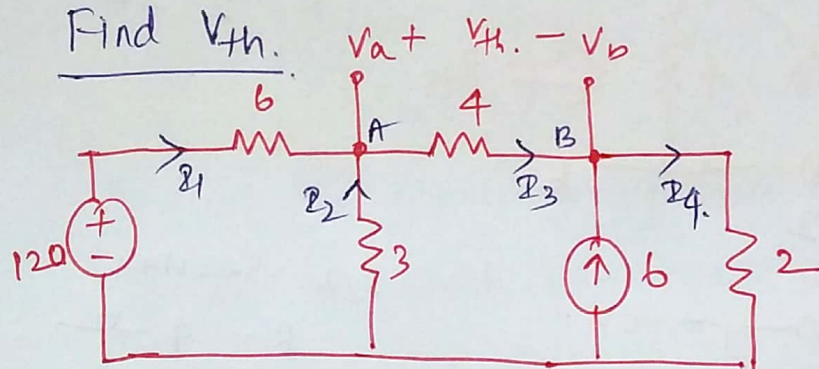 Find Vth.
Va + Vth. - Vb
6
4
A
B
I1
I2
I3
I4.
120
+
-
3
6
2